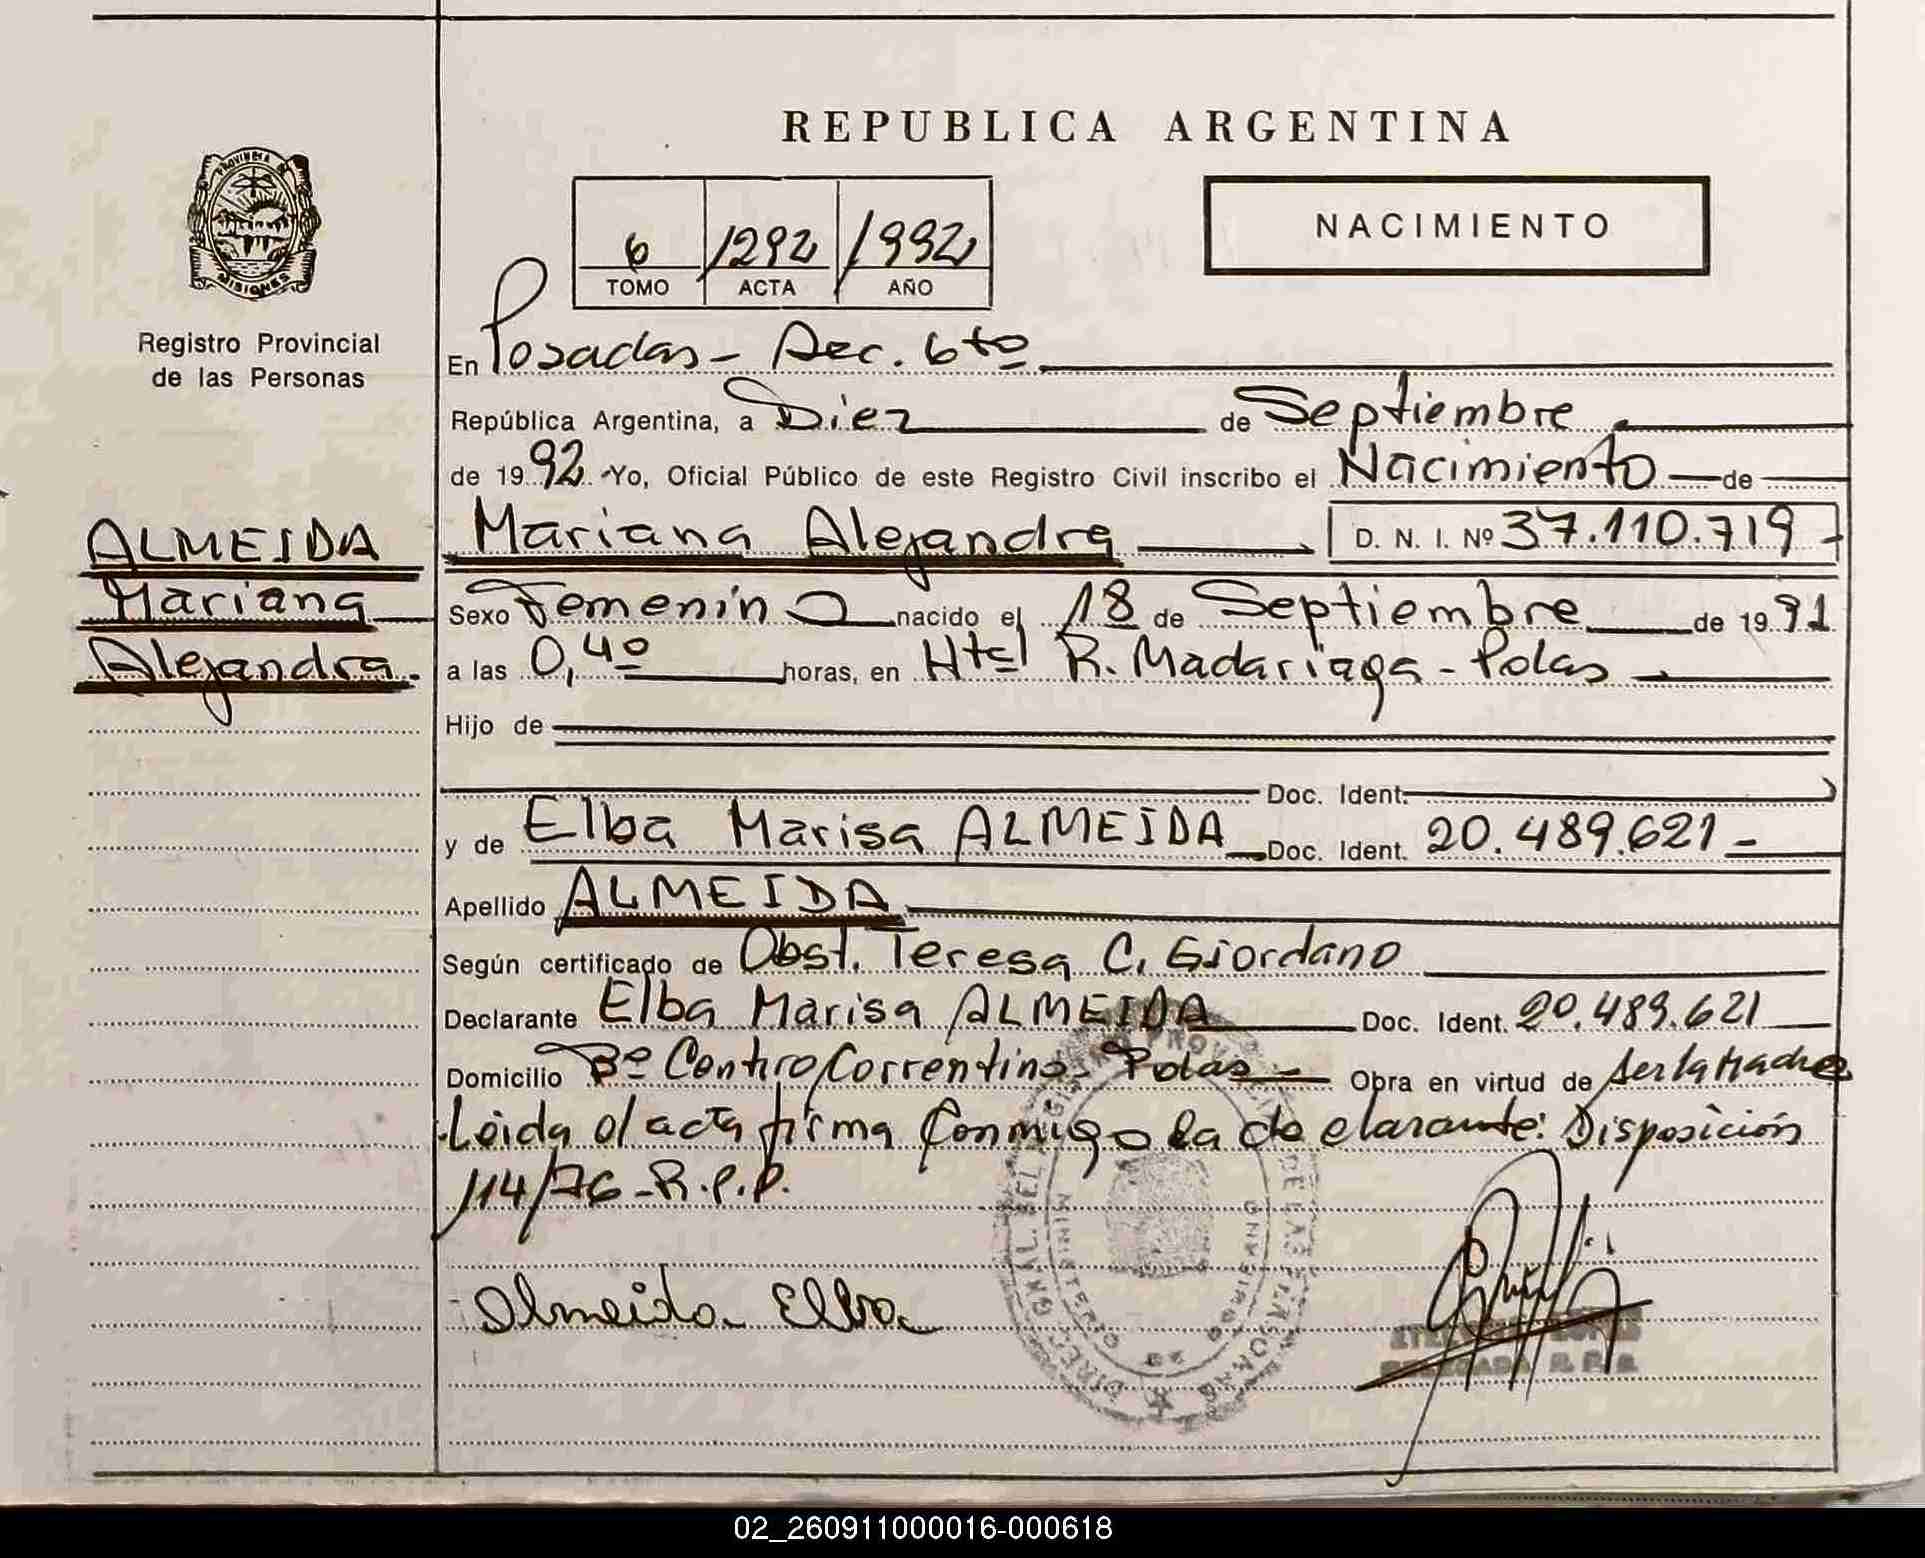 REPUBLICA ARGENTINA
PROVINCIA DE
MISIONES
Registro Provincial
de las Personas
6 1292 1992
TOMO ACTA AÑO
NACIMIENTO
En Posadas - Sec. 6to
República Argentina, a Diez de Septiembre
de 1992 Yo, Oficial Público de este Registro Civil inscribo el Nacimiento de
ALMEIDA
Mariana
Alejandra.
Mariana Alejandra D. N. I. Nº 37.110.719 -
Sexo Femenino nacido el 18 de Septiembre de 1991
a las 0,40 horas, en Htal R. Madariaga - Pdas
Hijo de
Doc. Ident.
y de Elba Marisa ALMEIDA Doc. Ident. 20.489.621 -
Apellido ALMEIDA
Según certificado de Obst. Teresa C. Giordano
Declarante Elba Marisa ALMEIDA Doc. Ident. 20.489.621
Domicilio Bº Centro Correntino - Pdas - Obra en virtud de ser la Madre
Leida el acta firma conmigo la declarante: Disposición
114/76 - R.P.P.
Almeida Elba
02_260911000016-000618